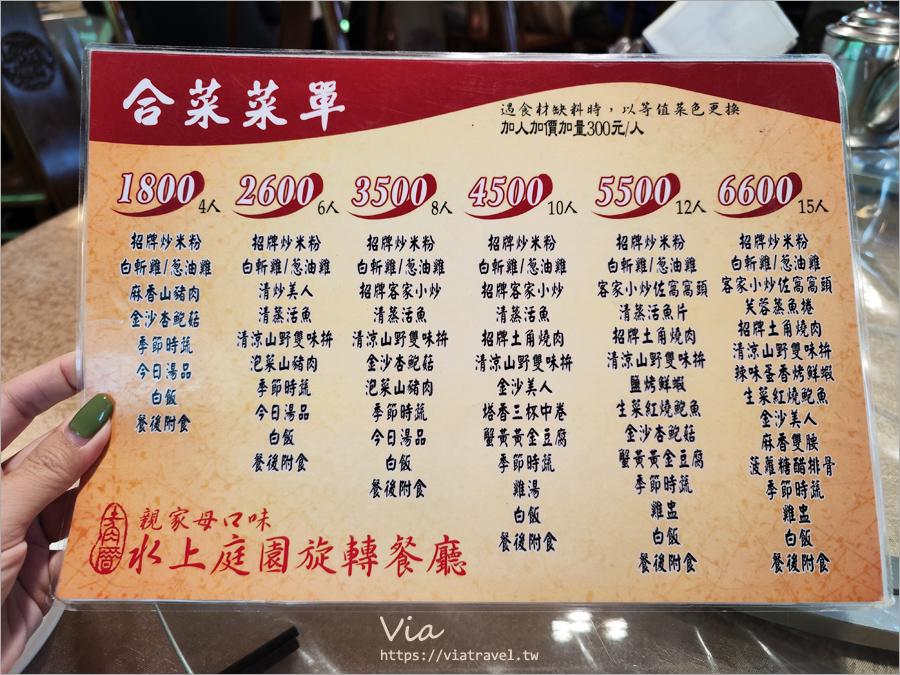 合菜菜單
遇食材缺料時,以等值菜色更換
加人加價加量300元/人
1800 4人
招牌炒米粉
白斬雞/蔥油雞
麻香山豬肉
金沙杏鮑菇
季節時蔬
今日湯品
白飯
餐後附食
2600 6人
招牌炒米粉
白斬雞/蔥油雞
清炒美人
清蒸活魚
清涼山野雙味拚
泡菜山豬肉
季節時蔬
今日湯品
白飯
餐後附食
3500 8人
招牌炒米粉
白斬雞/蔥油雞
招牌客家小炒
清蒸活魚
清涼山野雙味拚
金沙杏鮑菇
泡菜山豬肉
季節時蔬
今日湯品
白飯
餐後附食
4500 10人
招牌炒米粉
白斬雞/蔥油雞
招牌客家小炒
清蒸活魚
招牌土角燒肉
清涼山野雙味拚
金沙美人
塔香三杯中卷
蟹黃黃金豆腐
季節時蔬
雞湯
白飯
餐後附食
5500 12人
招牌炒米粉
白斬雞/蔥油雞
客家小炒佐窩窩頭
清蒸活魚片
招牌土角燒肉
清涼山野雙味拚
鹽烤鮮蝦
生菜紅燒鮑魚
金沙杏鮑菇
蟹黃黃金豆腐
季節時蔬
雞盅
白飯
餐後附食
6600 15人
招牌炒米粉
白斬雞/蔥油雞
客家小炒佐窩窩頭
芙蓉蒸魚捲
招牌土角燒肉
清涼山野雙味拚
辣味蛋香烤鮮蝦
生菜紅燒鮑魚
金沙美人
麻香雙腰
菠蘿糖醋排骨
季節時蔬
雞盅
白飯
餐後附食
親家母口味
水上庭園旋轉餐廳
Via
https://viatravel.tw